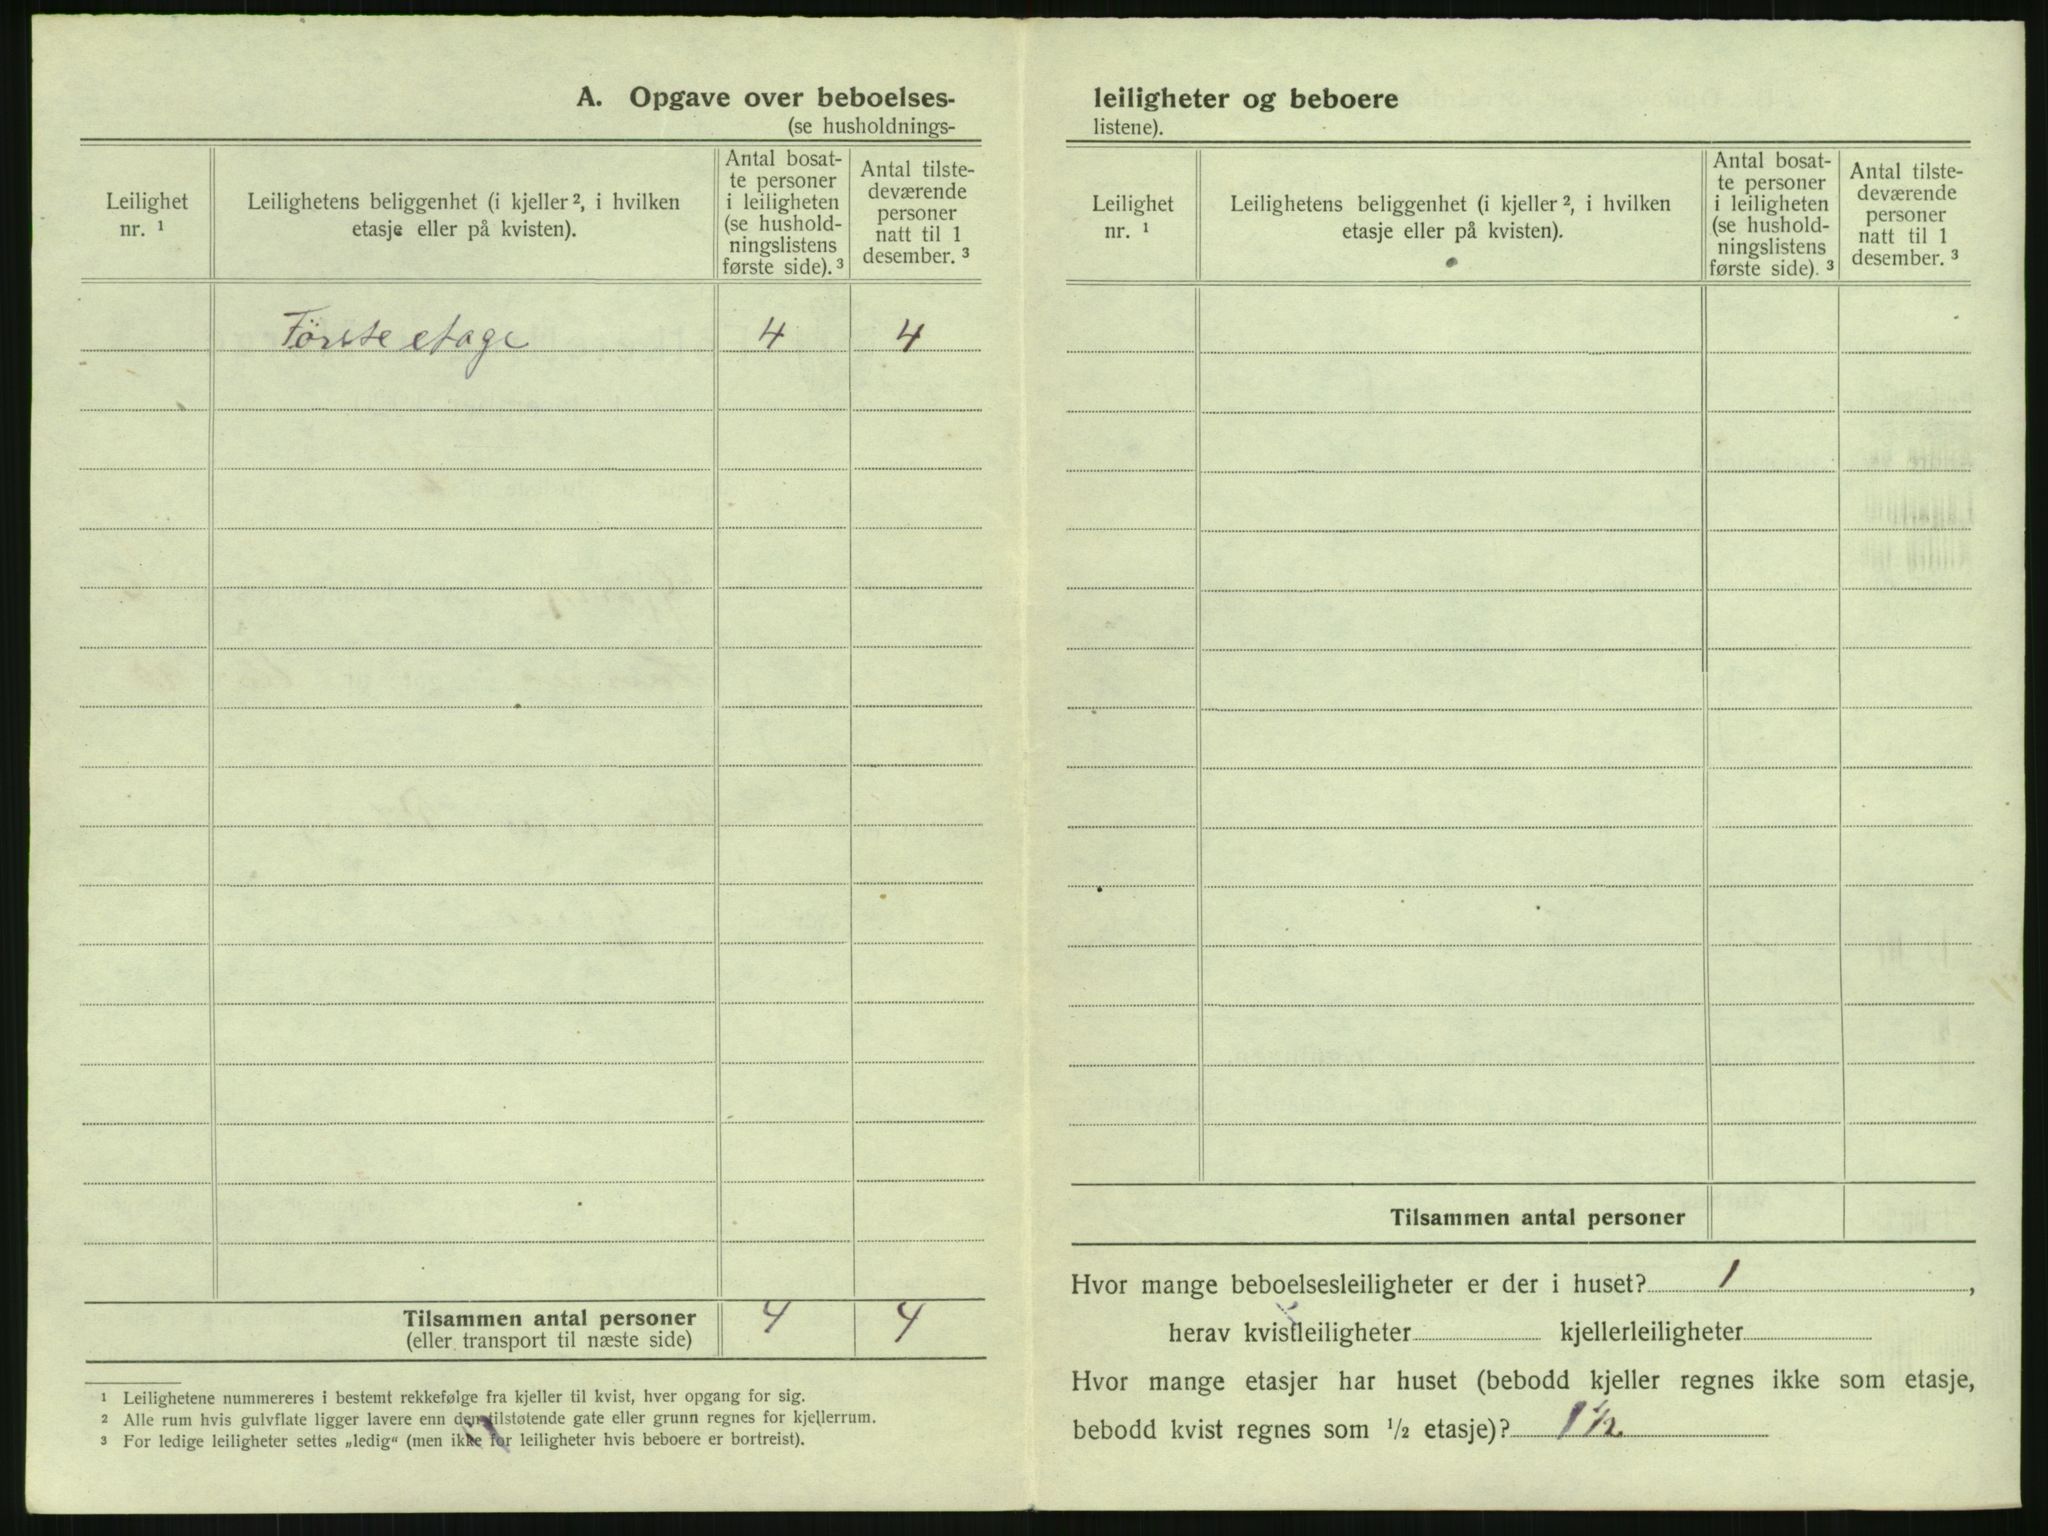 A. Opgave over beboelses-
(se husholdnings-
Leilighet
nr. ¹
Leilighetens beliggenhet (i kjeller ², i hvilken
etasje eller på kvisten).
Antal bosat-
te personer
i leiligheten
(se hushold-
ningslistens
første side). ³
Antal tilste-
deværende
personer
natt til 1
desember. ³
Første etage 4 4
Tilsammen antal personer 4 4
(eller transport til næste side)
¹ Leilighetene nummereres i bestemt rekkefølge fra kjeller til kvist, hver opgang for sig.
² Alle rum hvis gulvflate ligger lavere enn den tilstøtende gate eller grunn regnes for kjellerrum.
³ For ledige leiligheter settes „ledig“ (men ikke for leiligheter hvis beboere er bortreist).
leiligheter og beboere
listene).
Leilighet
nr. ¹
Leilighetens beliggenhet (i kjeller ², i hvilken
etasje eller på kvisten).
Antal bosat-
te personer
i leiligheten
(se hushold-
ningslistens
første side). ³
Antal tilste-
deværende
personer
natt til 1
desember. ³
Tilsammen antal personer
Hvor mange beboelsesleiligheter er der i huset? 1 ,
herav kvistleiligheter kjellerleiligheter
Hvor mange etasjer har huset (bebodd kjeller regnes ikke som etasje,
bebodd kvist regnes som ½ etasje)? 1 ½